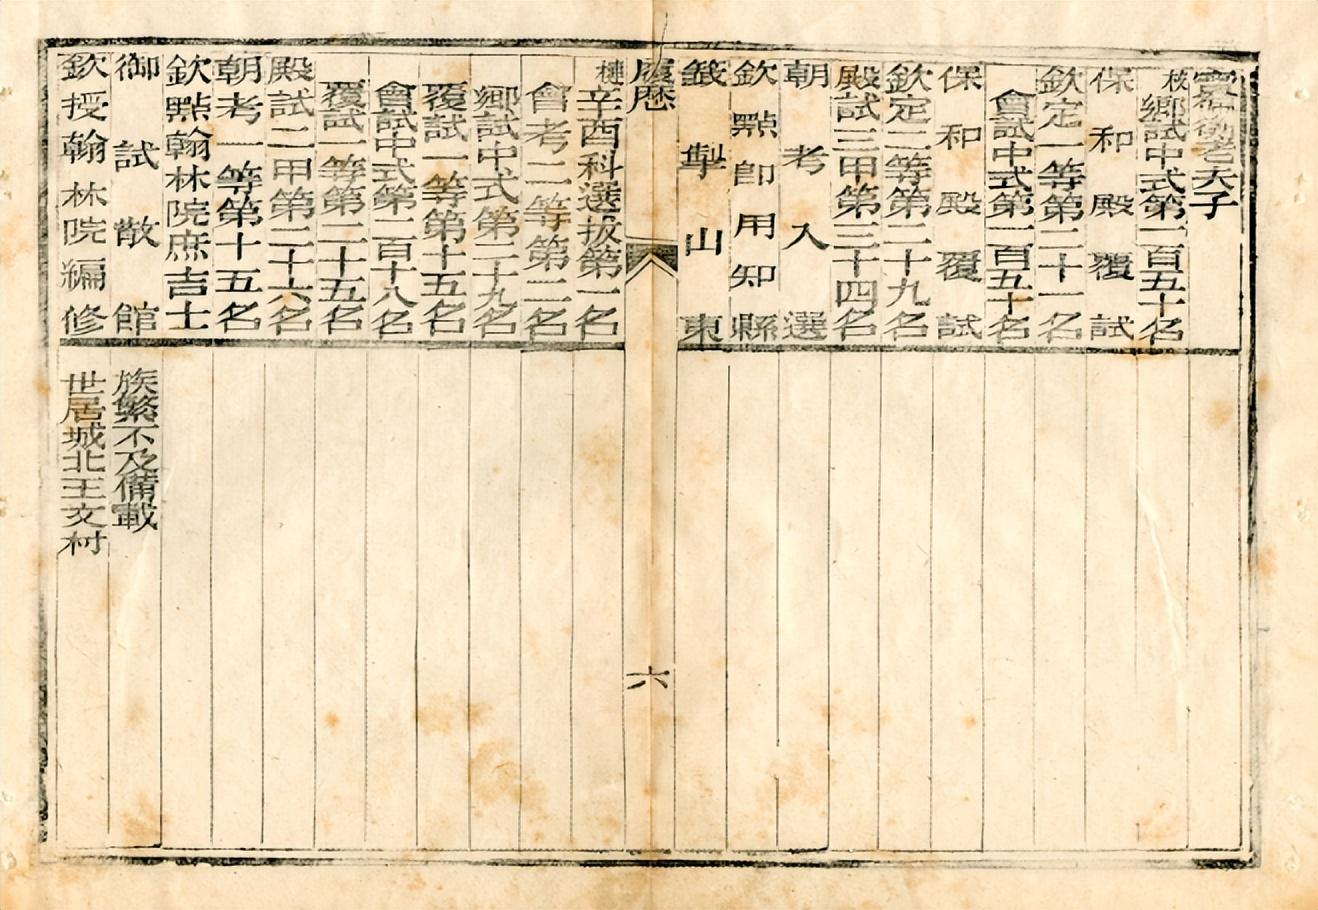 夫子
核鄉試中式第一百五十名
保和殿覆試
欽定一等第二十一名
會試中式第一百五十名
保和殿覆試
欽定二等第二十九名
殿試三甲第三十四名
朝考入選
欽點即用知縣
籤掣山東
履歷
六
槤辛酉科選拔第一名
會考二等第二名
鄉試中式第二十九名
覆試一等第十五名
會試中式第二百十八名
覆試一等第二十五名
殿試二甲第二十六名
朝考一等第十五名
欽點翰林院庶吉士
御試散館
族繁不及備載
欽授翰林院編修
世居城北王文村